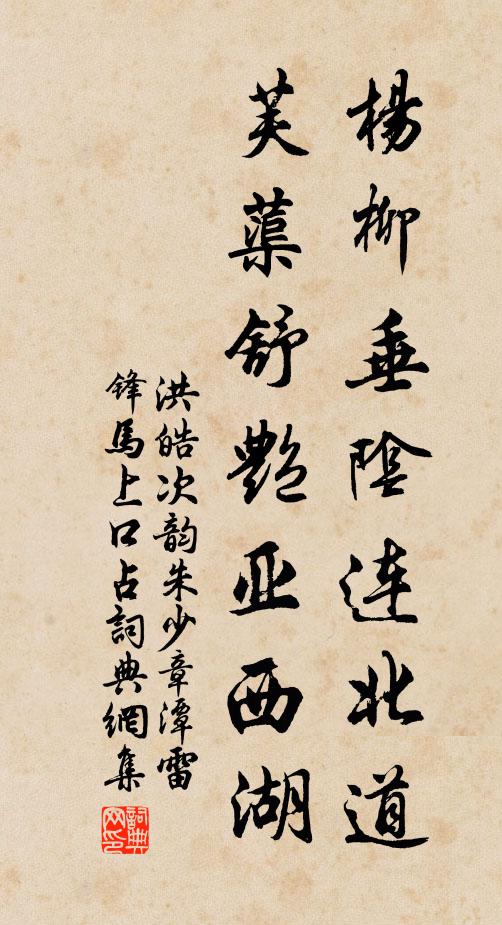 楊柳垂陰連北道
芙蕖舒艷亚西湖
洪皓次韵朱少章潭雷
锋馬上口占詞典網集
詞典网印